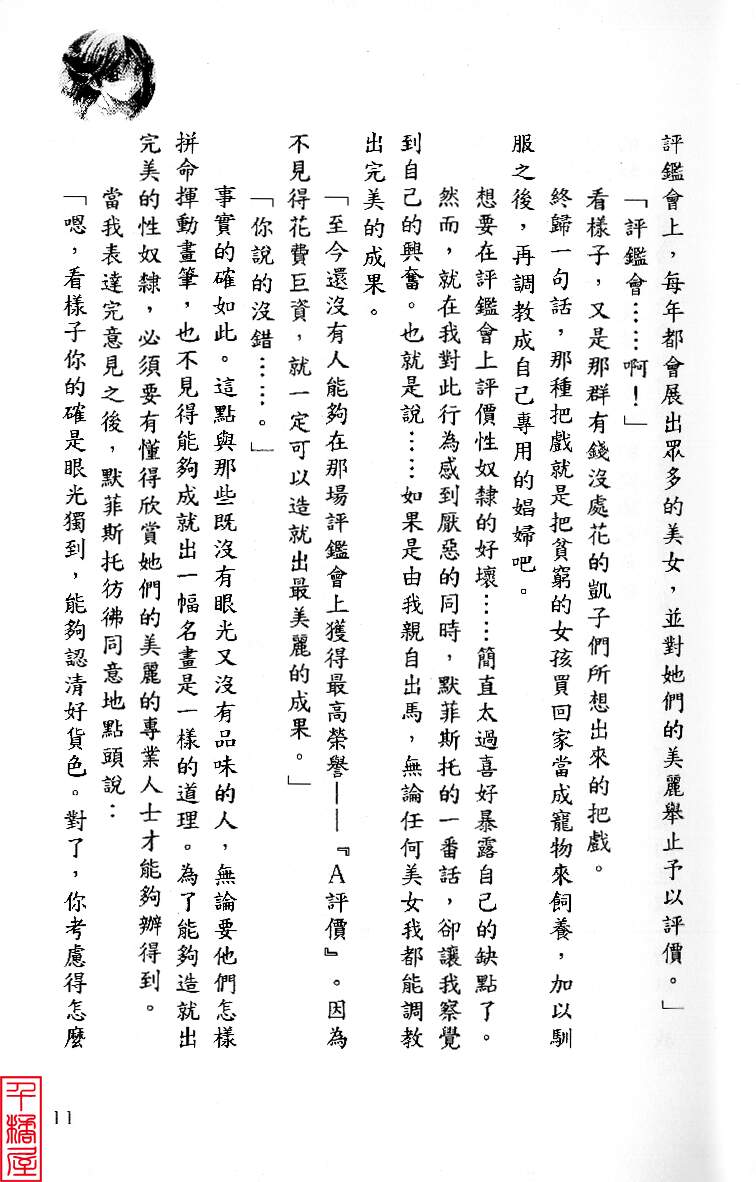 評鑑會上，每年都會展出眾多的美女，並對她們的美麗舉止予以評價。」
「評鑑會……啊！」
看樣子，又是那群有錢沒處花的凱子們所想出來的把戲。
終歸一句話，那種把戲就是把貧窮的女孩買回家當成寵物來飼養，加以馴
服之後，再調教成自己專用的娼婦吧。
想要在評鑑會上評價性奴隸的好壞……簡直太過喜好暴露自己的缺點了。
然而，就在我對此行為感到厭惡的同時，默菲斯托的一番話，卻讓我察覺
到自己的興奮。也就是說……如果是由我親自出馬，無論任何美女我都能調教
出完美的成果。
「至今還沒有人能夠在那場評鑑會上獲得最高榮譽——『A評價』。因為
不見得花費巨資，就一定可以造就出最美麗的成果。」
「你說的沒錯……。」
事實的確如此。這點與那些既沒有眼光又沒有品味的人，無論要他們怎樣
拼命揮動畫筆，也不見得能夠成就出一幅名畫是一樣的道理。為了能夠造就出
完美的性奴隸，必須要有懂得欣賞她們的美麗的專業人士才能夠辦得到。
當我表達完意見之後，默菲斯托彷彿同意地點頭說：
「嗯，看樣子你的確是眼光獨到，能夠認清好貨色。對了，你考慮得怎麼
11
千橘屋